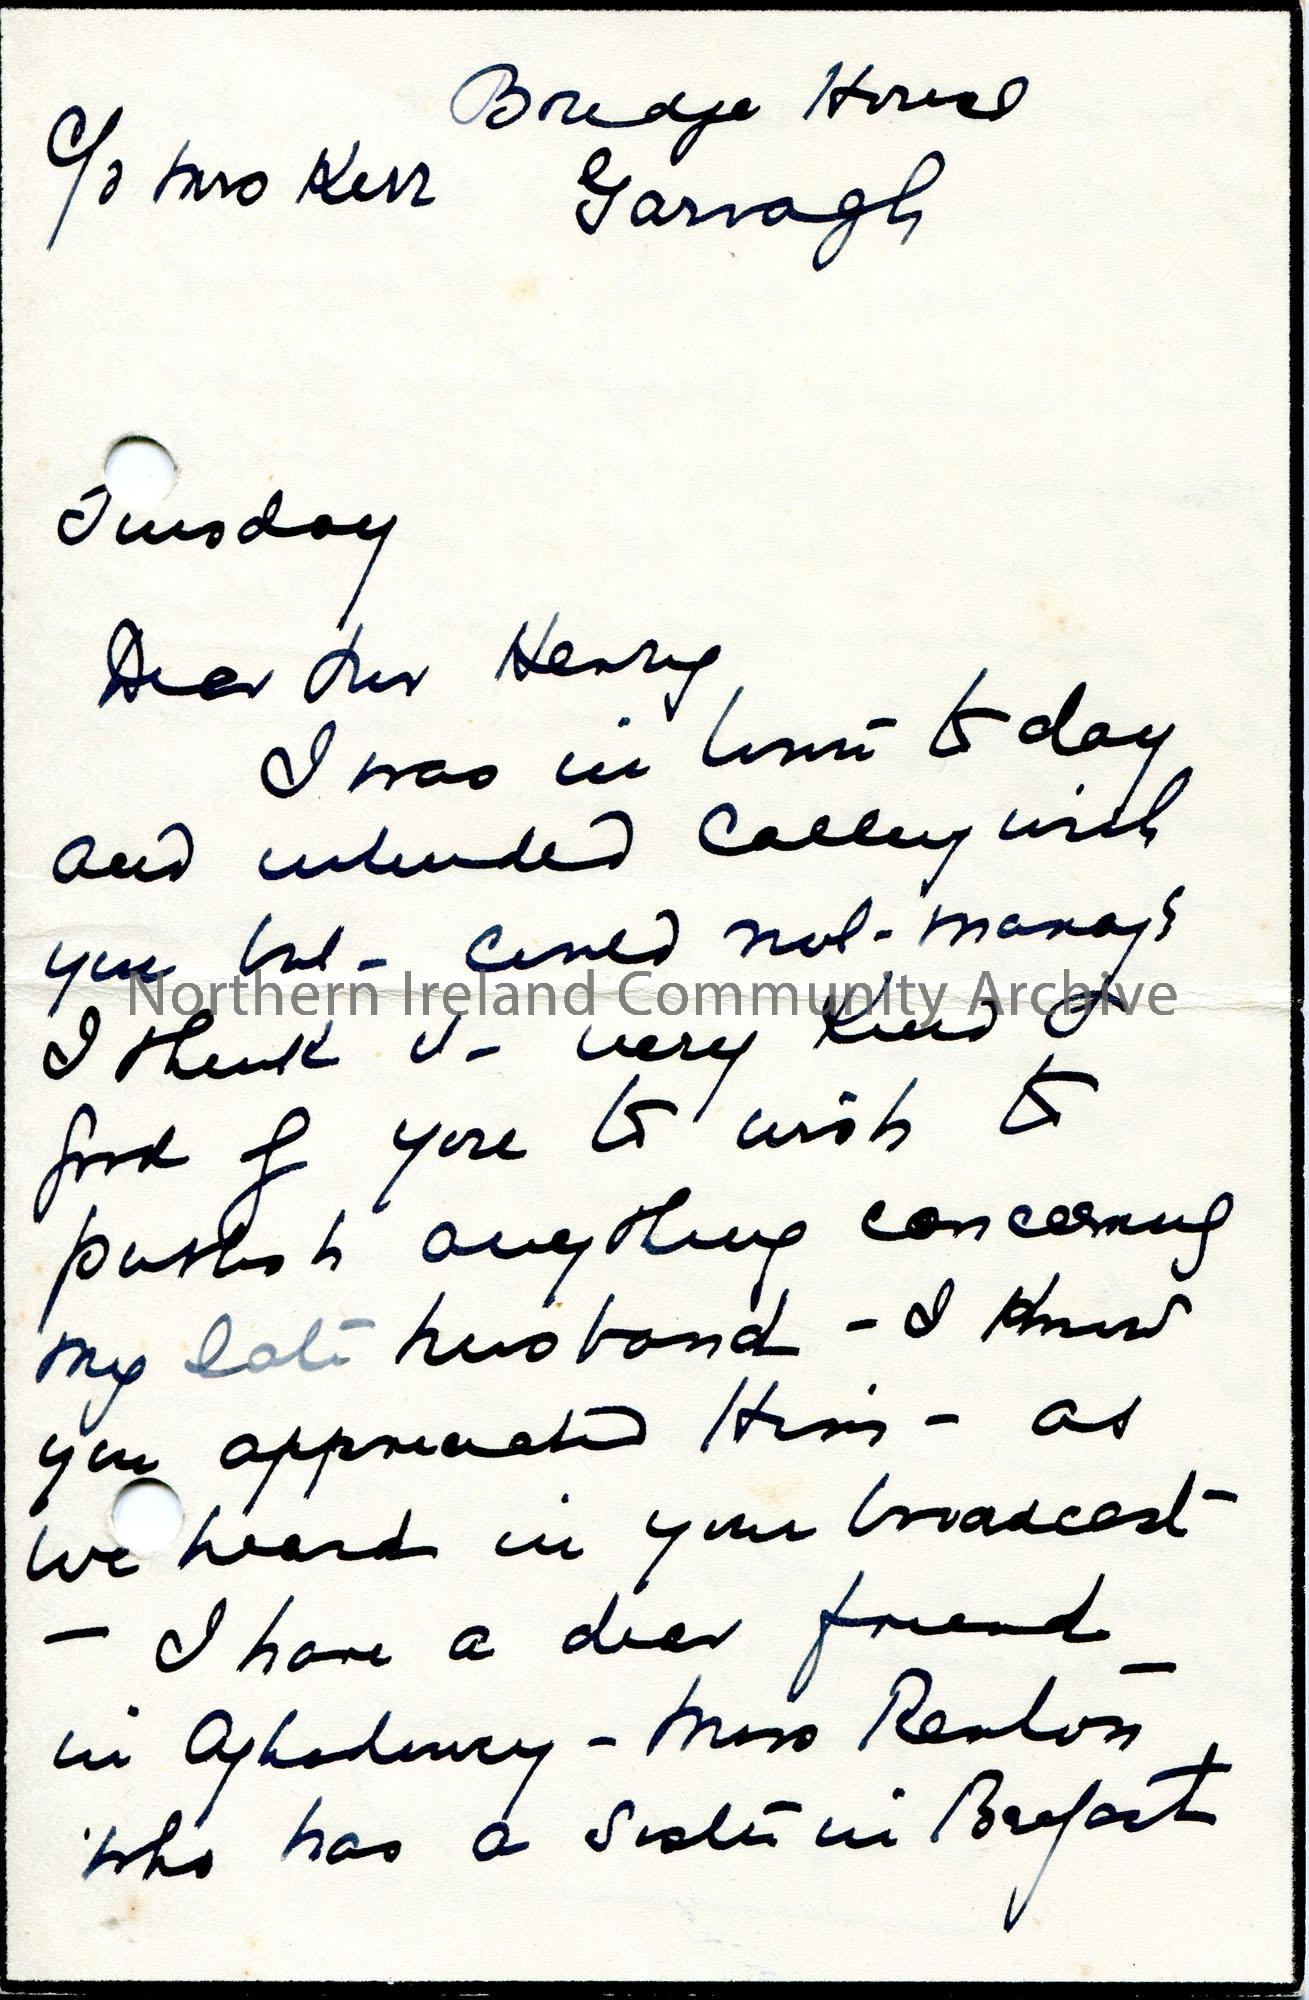 Bridge House
c/o Mrs Kerr Garvagh
Tuesday
Dear Mr Henry
I was in town to day
and intended calling with
you but - could not - manage
I think it - very kind &
good of you to wish to
publish anything concerning
my late husband - I know
you appreciated Him - as
we heard in your broadcast
- I have a dear friend
in Aghadowey - Miss Renton
who has a sister in Belfast
Northern Ireland Community Archive